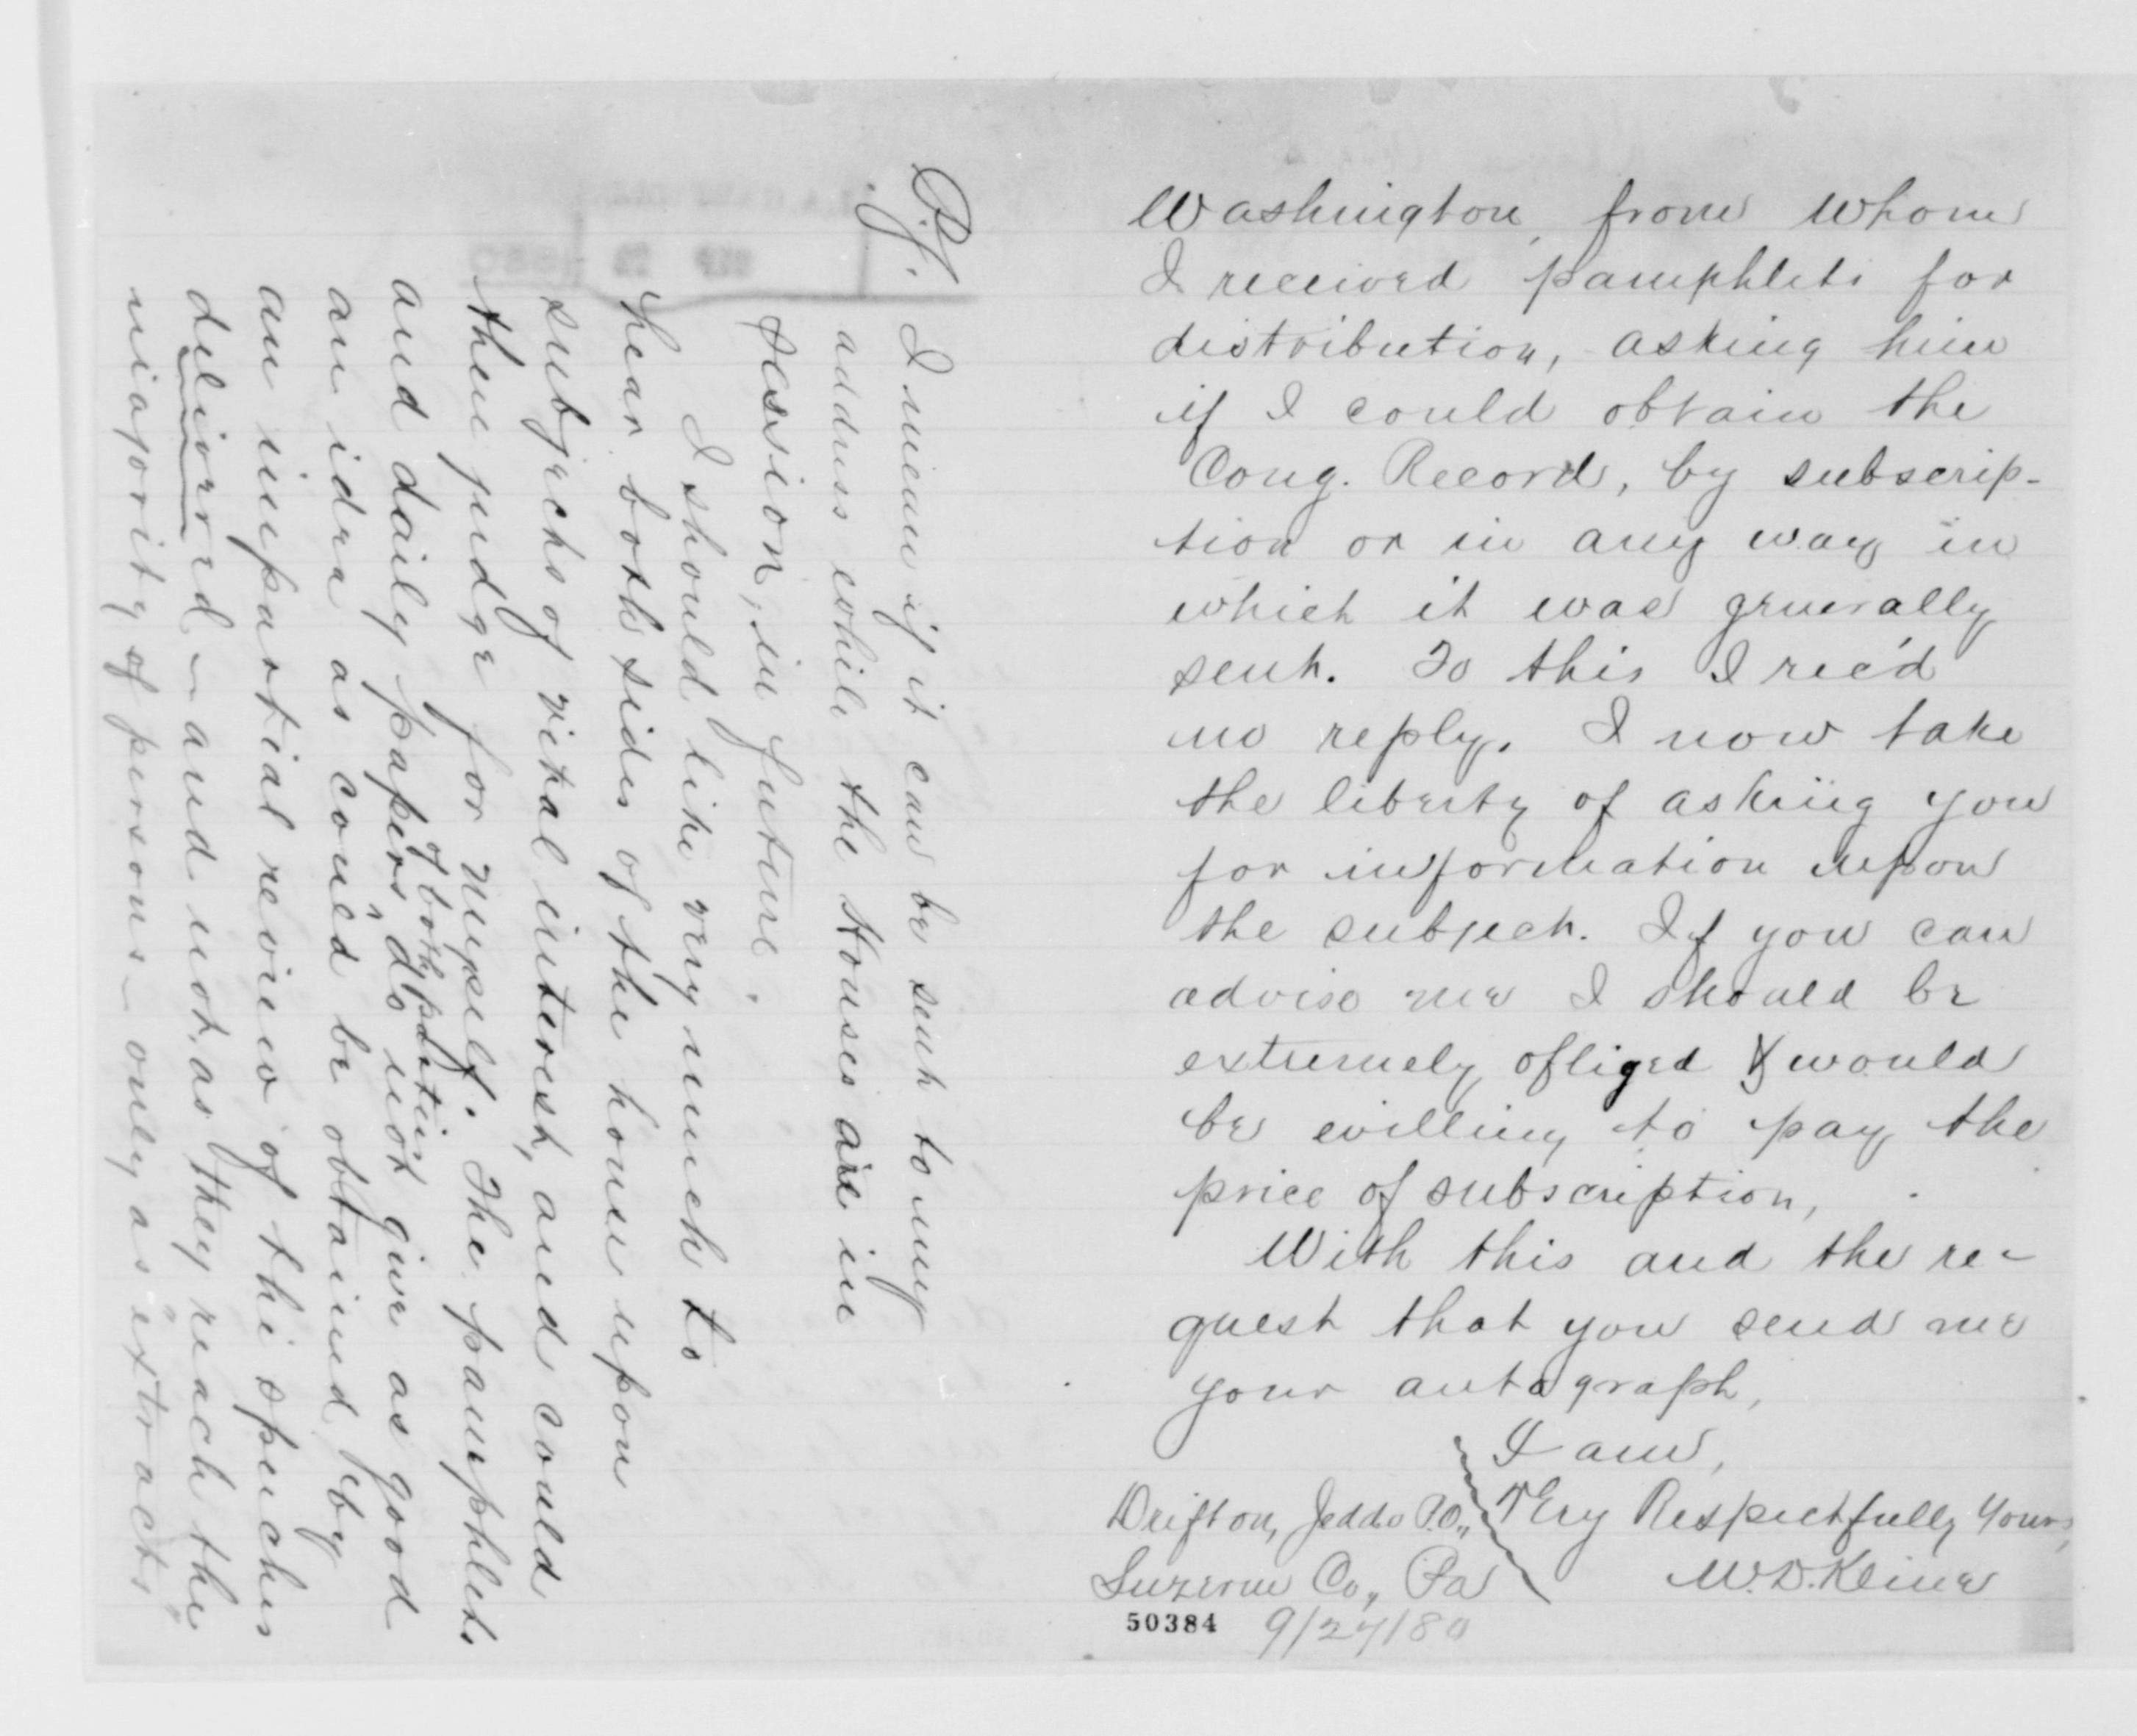 Washington, from whom
I received pamphlets for
distribution, asking him
if I could obtain the
Cong. Record, by subscrip-
tion or in any way in
which it was generally
sent. To this I rec'd
no reply. I now take
the liberty of asking you
for information upon
the subject. If you can
advise me I should be
extremely obliged & would
be willing to pay the
price of subscription,
With this and the re-
quest that you send me
your autograph,
I am,
Very Respectfully Yours,
M. D. Kline
Drifton, Jeddo P.O.,
Luzerne Co., Pa
50384 9/27/80
P.S. I mean if it can be sent to my
address while the Houses are in
session, in future.
I should like very much to
hear both sides of the house upon
subjects of vital interest, and could
then judge for myself. The pamphlets
and daily papers, of both parties, do not give as good
an idea as could be obtained by
an impartial review of the speeches
delivered – and not as they reach the
majority of persons – only as extracts